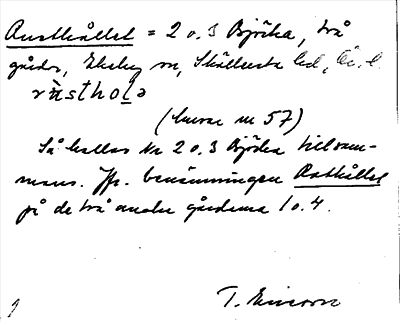 Rusthållet = 2 o. 3 Björka, två
gårdar, Ekeby sn, Skölersta hd, Ör. l.
(Surv nr 57)
Så kallas nr 2 o. 3 Björka tillsam-
mans. Jfr. benämningen Rothållet
på de två andra gårdarna 1 o. 4.
T. Ericsson